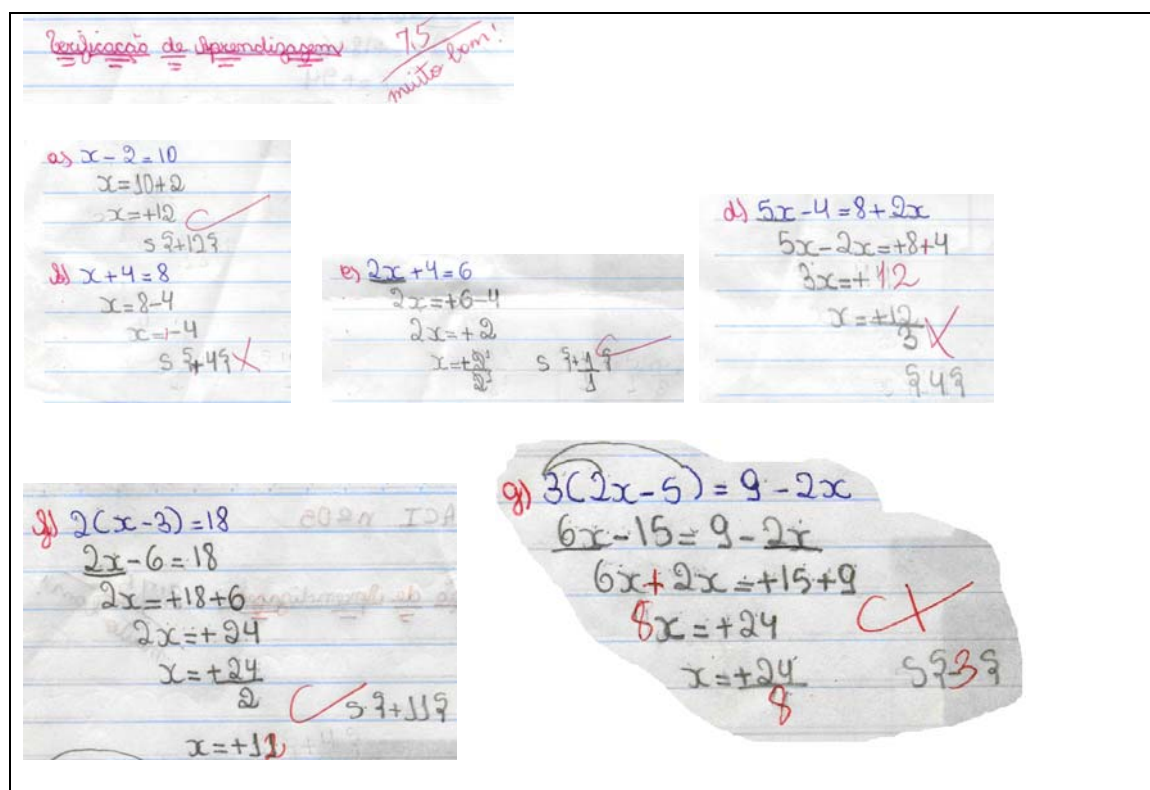 Verificação de Aprendizagem 7,5
muito bom!
a) x - 2 = 10
x = 10 + 2
x = +12
S {+12}
b) x + 4 = 8
x = 8 - 4
x = -4
S {+4}
e) 2x + 4 = 6
2x = +6 - 4
2x = +2
x = +2/2
S {+1/1}
d) 5x - 4 = 8 + 2x
5x - 2x = +8 + 4
3x = +12
x = +12/3
{4}
f) 2(x - 3) = 18
2x - 6 = 18
2x = +18 + 6
2x = +24
x = +24/2
S {+11}
x = +12
g) 3(2x - 5) = 9 - 2x
6x - 15 = 9 - 2x
6x + 2x = +15 + 9
8x = +24
x = +24/8
S {3}